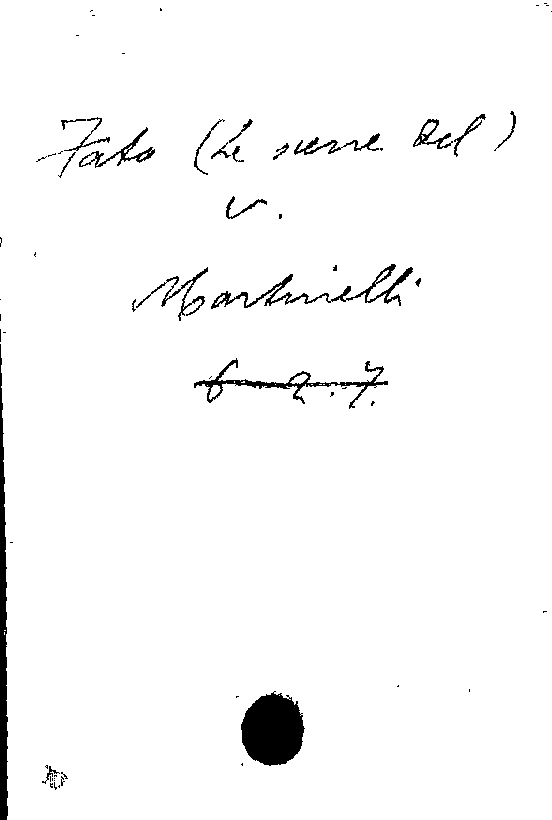 Fato (Le serre del)
v.
Martinelli
6 2.7.